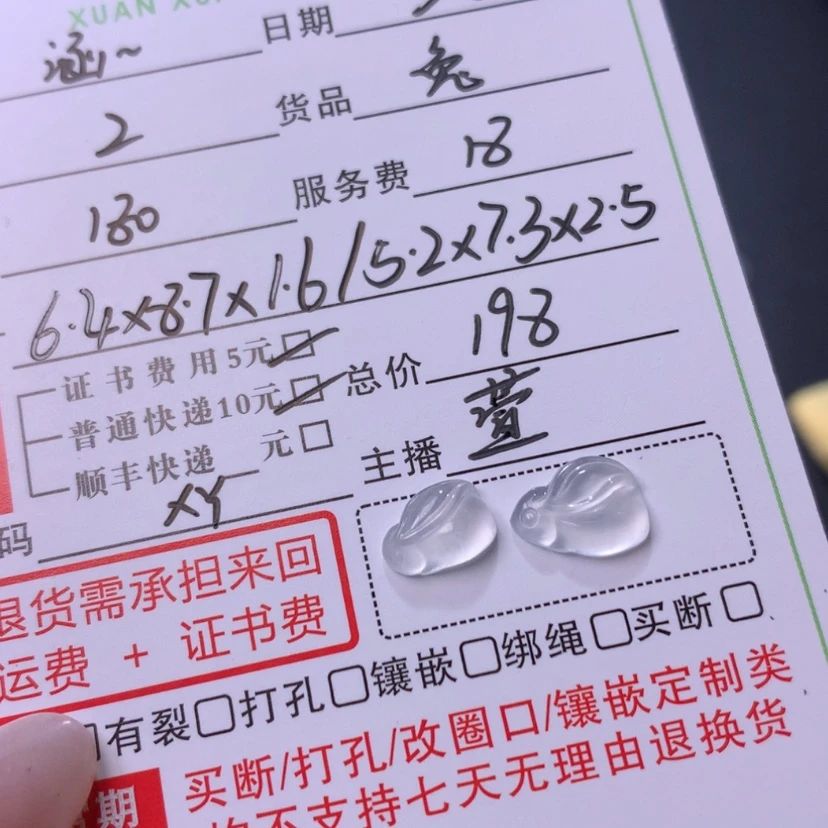 XUAN XU
涵~ 日期
2 货品 兔
180 服务费 18
6.4×8.7×1.6/5.2×7.3×2.5
证书费用5元 总价 198
普通快递10元
顺丰快递 元 主播 萱
码 XY
退货需承担来回
运费 + 证书费
有裂 打孔 镶嵌 绑绳 买断
买断/打孔/改圈口/镶嵌定制类
均不支持七天无理由退换货
期